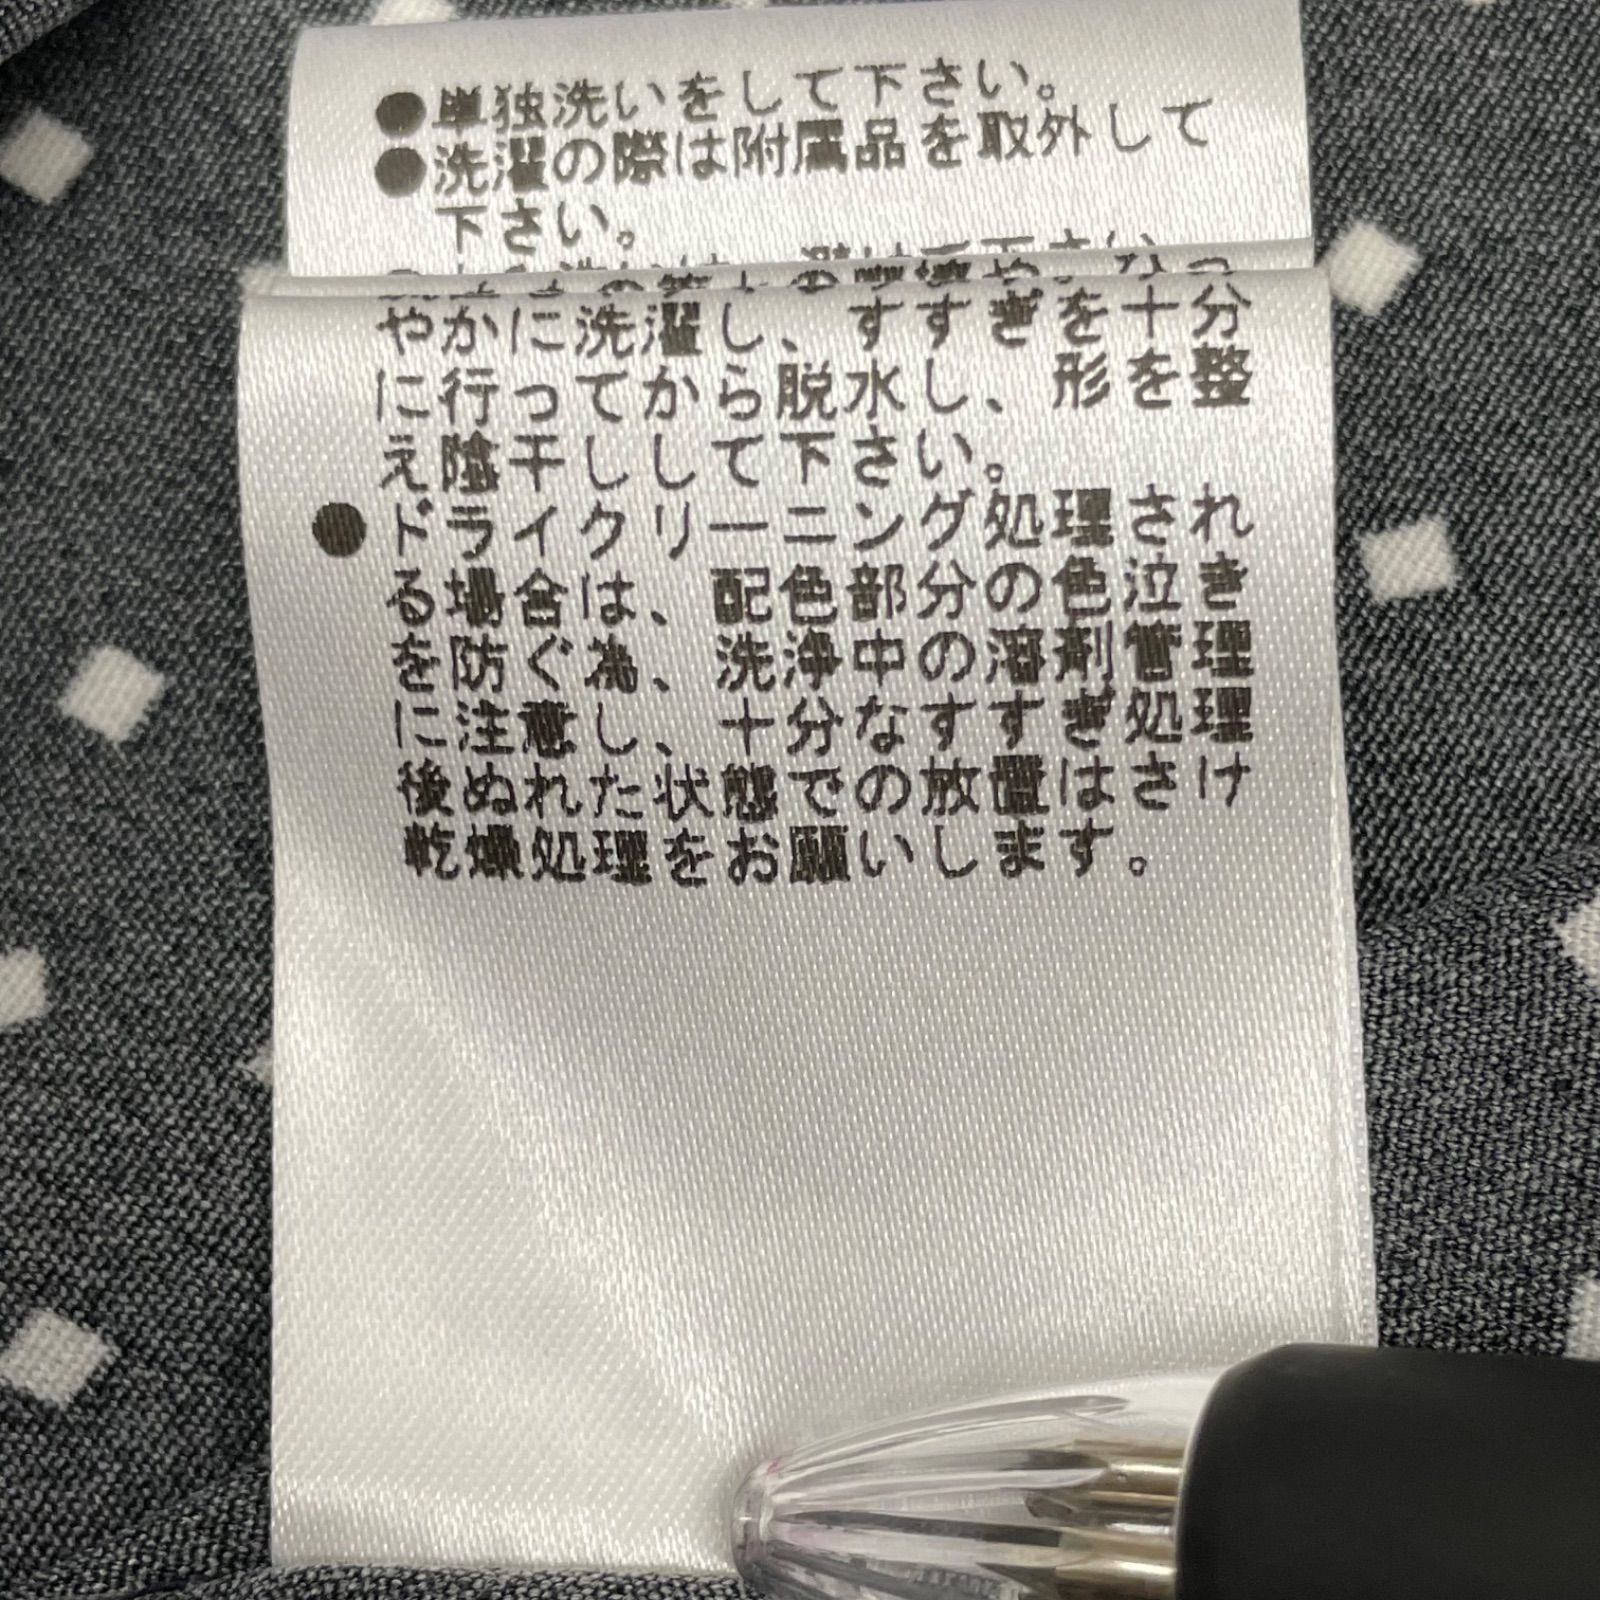 ●単独洗いをして下さい。
●洗濯の際は附属品を取外して
下さい。
やかに洗濯し、すすぎを十分
に行ってから脱水し、形を整
え陰干しして下さい。
●ドライクリーニング処理され
る場合は、配色部分の色泣き
を防ぐ為、洗浄中の溶剤管理
に注意し、十分なすすぎ処理
後ぬれた状態での放置はさけ
乾燥処理をお願いします。